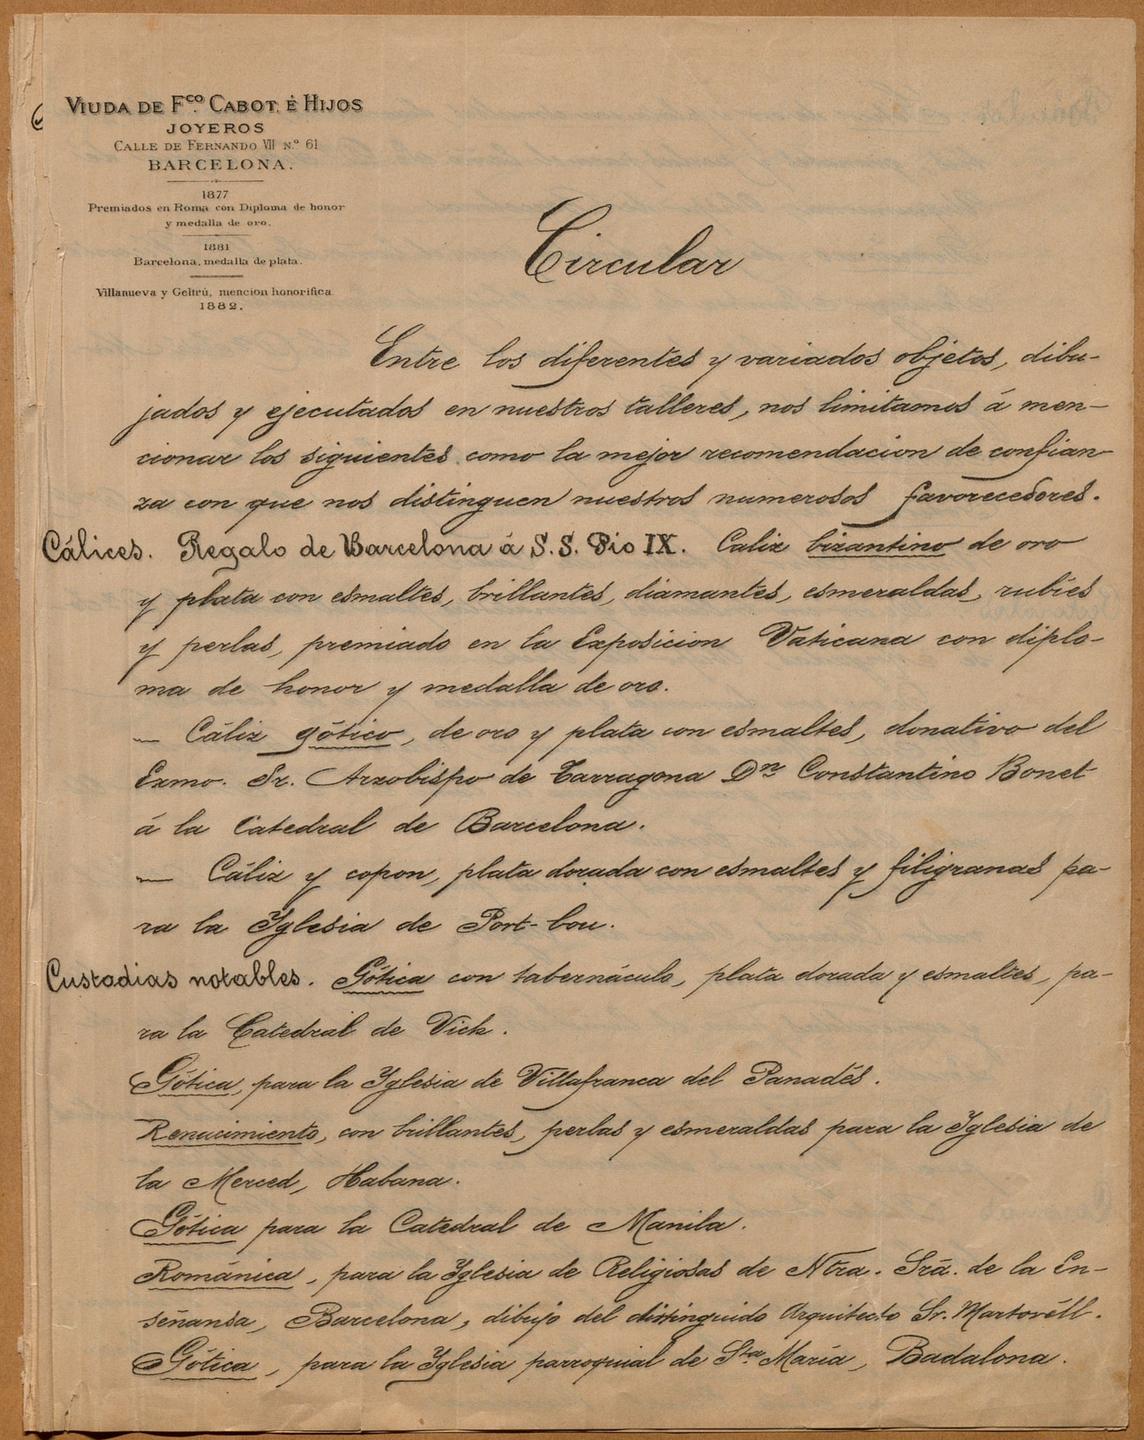 VIUDA DE Fco. CABOT É HIJOS
JOYEROS
CALLE DE FERNANDO VII N.º 61
BARCELONA.
1877
Premiados en Roma con Diploma de honor
y medalla de oro.
1881
Barcelona, medalla de plata.
Villanueva y Geltrú, mencion honorifica
1882.
Circular
Entre los diferentes y variados objetos, dibu-
jados y ejecutados en nuestros talleres, nos limitamos á men-
cionar los siguientes como la mejor recomendacion de confian-
za con que nos distinguen nuestros numerosos favorecedores.
Cálices. Regalo de Barcelona á S. S. Pio IX. Caliz bizantino de oro
y plata con esmaltes, brillantes, diamantes, esmeraldas, rubíes
y perlas, premiado en la Exposicion Vaticana con diplo-
ma de honor y medalla de oro.
— Cáliz gótico, de oro y plata con esmaltes, donativo del
Exmo. Sr. Arzobispo de Tarragona Dn Constantino Bonet
á la Catedral de Barcelona.
— Cáliz y copon, plata dorada con esmaltes y filigranas pa-
ra la Yglesia de Port-bou.
Custodias notables. Gótica con tabernáculo, plata dorada y esmaltes, pa-
ra la Catedral de Vich.
Gótica, para la Yglesia de Villafranca del Panadés.
Renacimiento, con brillantes, perlas y esmeraldas para la Yglesia de
la Merced, Habana.
Gótica para la Catedral de Manila.
Románica, para la Yglesia de Religiosas de Ntra. Srã. de la En-
señansa, Barcelona, dibujo del distinguido Arquitecto Sr. Martoréll.
Gótica, para la Yglesia parroquial de Sta María, Badalona.